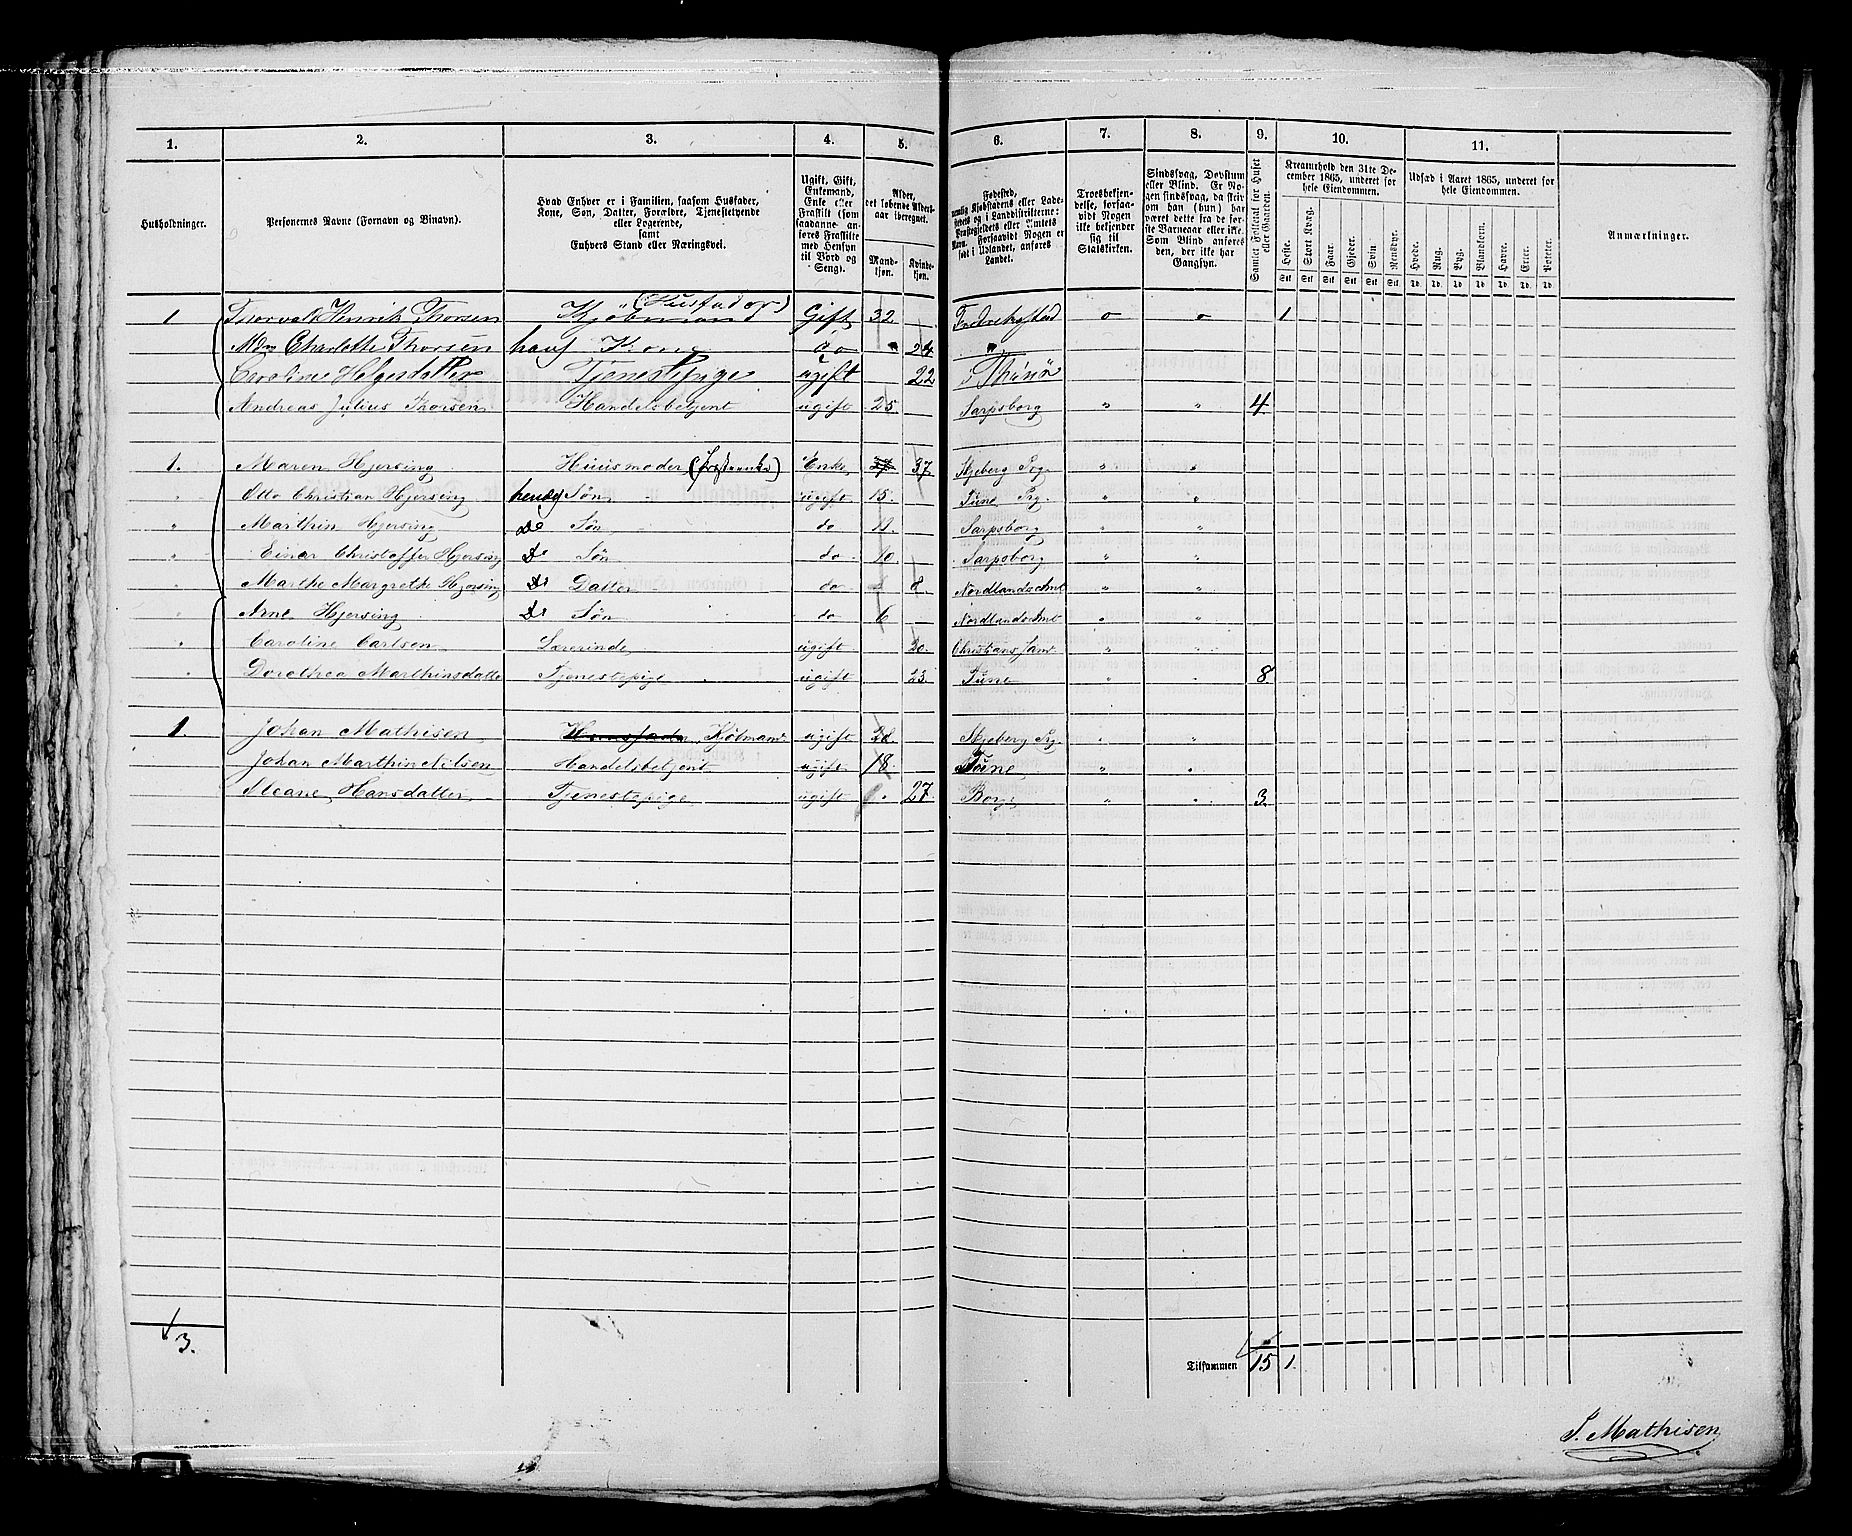 1. 2. 3. 4. 5. 6. 7. 8. 9. 10. 11.
Husholdninger.
Personernes Navne (Fornavn og Binavn).
Hvad Enhver er i Familien, saasom Husfader,
Kone, Søn, Datter, Forældre, Tjenestetyende
eller Logerende,
samt
Enhvers Stand eller Næringsvei.
Ugift, Gift,
Enkemand,
Enke eller
Fraskilt (som
saadanne an-
føres Fraskilte
med Hensyn
til Bord og
Seng).
Alder,
det løbende Alders-
aar iberegnet.
Mand-
kjøn.
Kvinde-
kjøn.
Fødested,
nemlig Kjøbstadens eller Lade-
stedets og i Landdistrikterne:
Præstegjeldets eller Amtets
Navn. Forsaavidt Nogen er
født i Udlandet, anføres
Landet.
Troesbekjen-
delse, forsaa-
vidt Nogen
ikke bekjender
sig til
Statskirken.
Sindssvag, Døvstum
eller Blind. Er No-
gen sindssvag, da skriv
om han (hun) har
været dette fra de før-
ste Barneaar eller ikke.
Som Blind anføres
den, der ikke har
Gangsyn.
Samlet Folketal for Huset
eller Gaarden.
Kreaturhold den 31te De-
cember 1865, underet for
hele Eiendommen.
Heste. Stort Kvæg. Faar. Gjeder. Svin Rensdyr.
Stk. Stk. Stk. Stk. Stk. Stk.
Udsæd i Aaret 1865, underet for
hele Eiendommen.
Hvede. Rug. Byg. Blandkorn. Havre. Erter. Poteter.
Td. Td. Td. Td. Td. Td. Td.
Anmærkninger.
1 Thorvald Henrik Thorsen Kjøbmand (Husfader) Gift 32 Fredrikstad o o 1
Mdm Charlotte Thorsen hans Kone do 24 "
Caroline Helgesdatter Tjenestepige ugift 22
Andreas Julius Thorsen Handelsbetjent ugift 25. Sarpsborg " " 4
1. Maren Hjersing Huusmoder Enke 37 Skjeberg Prg. " "
" Otto Christian Hjersing hendes Søn ugift 15. Tune Prg. " "
" Marthin Hjersing do Søn do Sarpsborg " "
" Einar Christoffer Hjersing do Søn do 10 Sarpsborg " "
" Marthe Margrethe Hjersing do Datter do 8. Nordlands Amt " "
" Arne Hjersing do Søn do 6 Nordlands Amt " "
" Caroline Carlsen Lærerinde ugift 20. " "
" Dorothea Marthinsdatter Tjenestepige ugift 23. Tune " " 8
1. Johan Mathisen Huusfader, Kjøbmand ugift 28. Skjeberg Prg. " "
Johan Marthin Nilsen Handelsbetjent ugift 18. Tune " "
Hansdatter Tjenestepige ugift 27. Borge " " 3.
3.
Tilsammen 15 1.
J. Mathisen